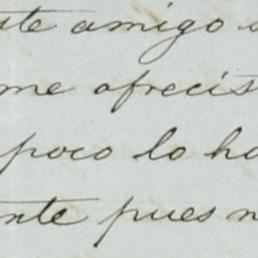 ste amigo
me ofrecis
poco lo ha
nte pues n